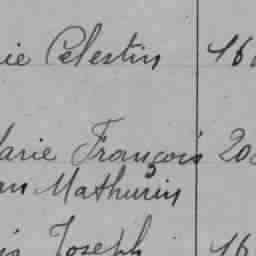 ie Celestin 16
arie François 20
an Mathurin
is Joseph 16